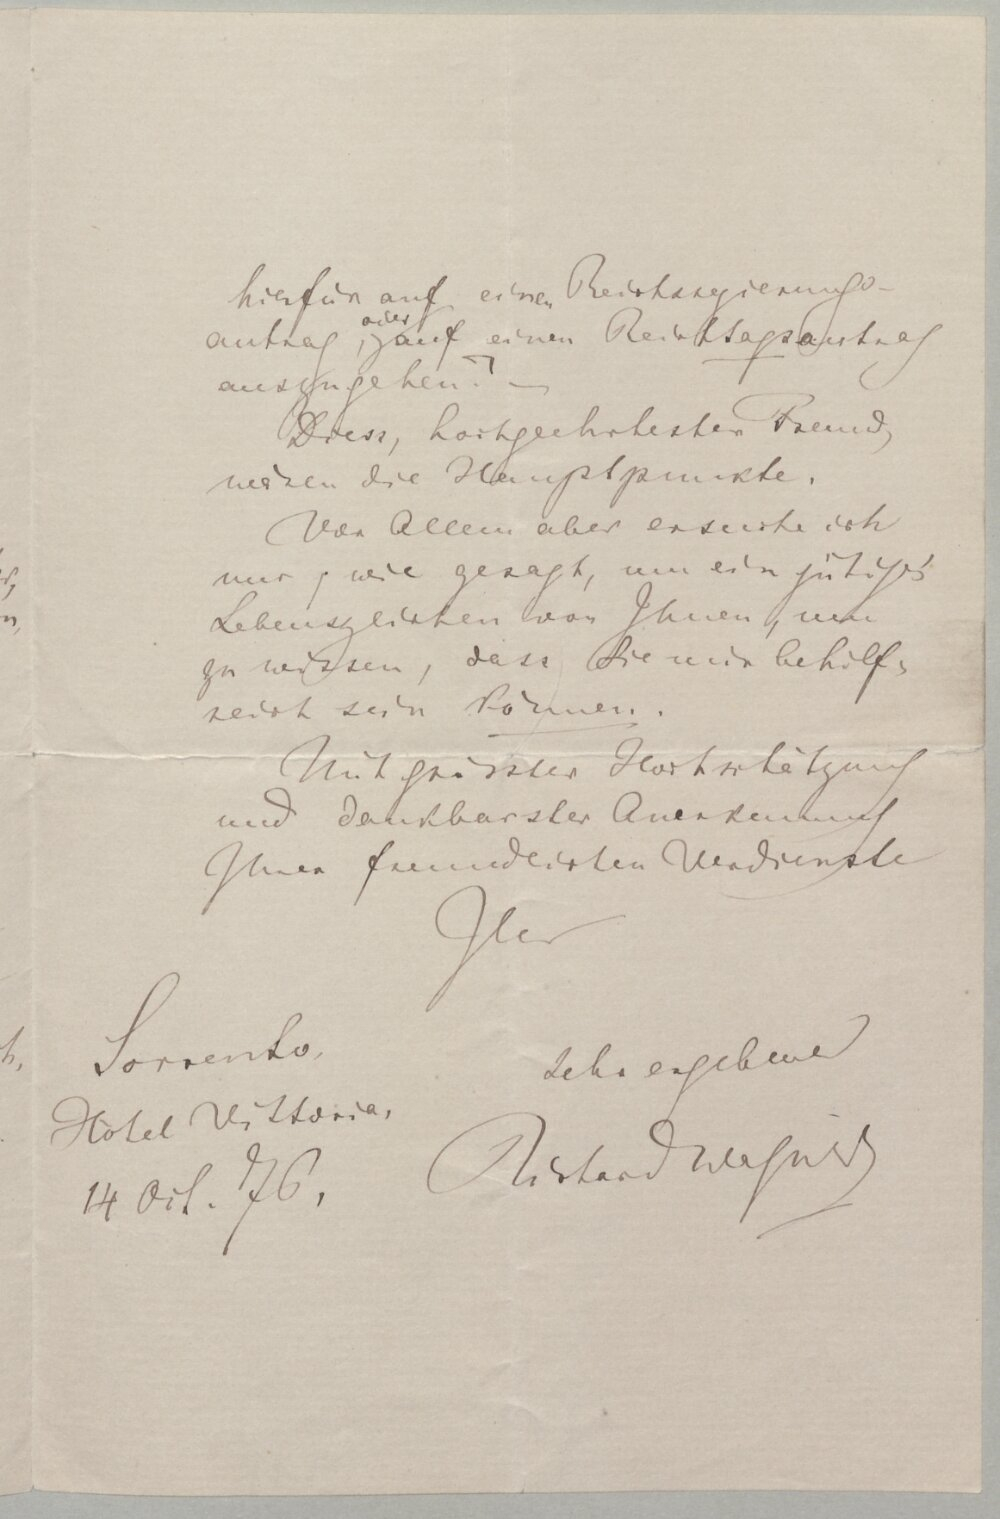 hierfür auf einen Reichsregierungs-
antrag, oder auf einen Reichstagsantrag
auszugehen? —
Diess, hochgeehrtester Freund,
wären die Hauptpunkte.
Vor Allem aber ersuche ich
nur, wie gesagt, um ein gütiges
Lebenszeichen von Ihnen, um
zu wissen, dass Sie mir behilf-
reich sein können.
Mit grösster Hochschätzung
und dankbarster Anerkennung
Ihrer freundlichen Verdienste
Ihr
sehr ergebener
Richard Wagner
Sorrento.
Hôtel Vittoria.
14 Oct. 76.